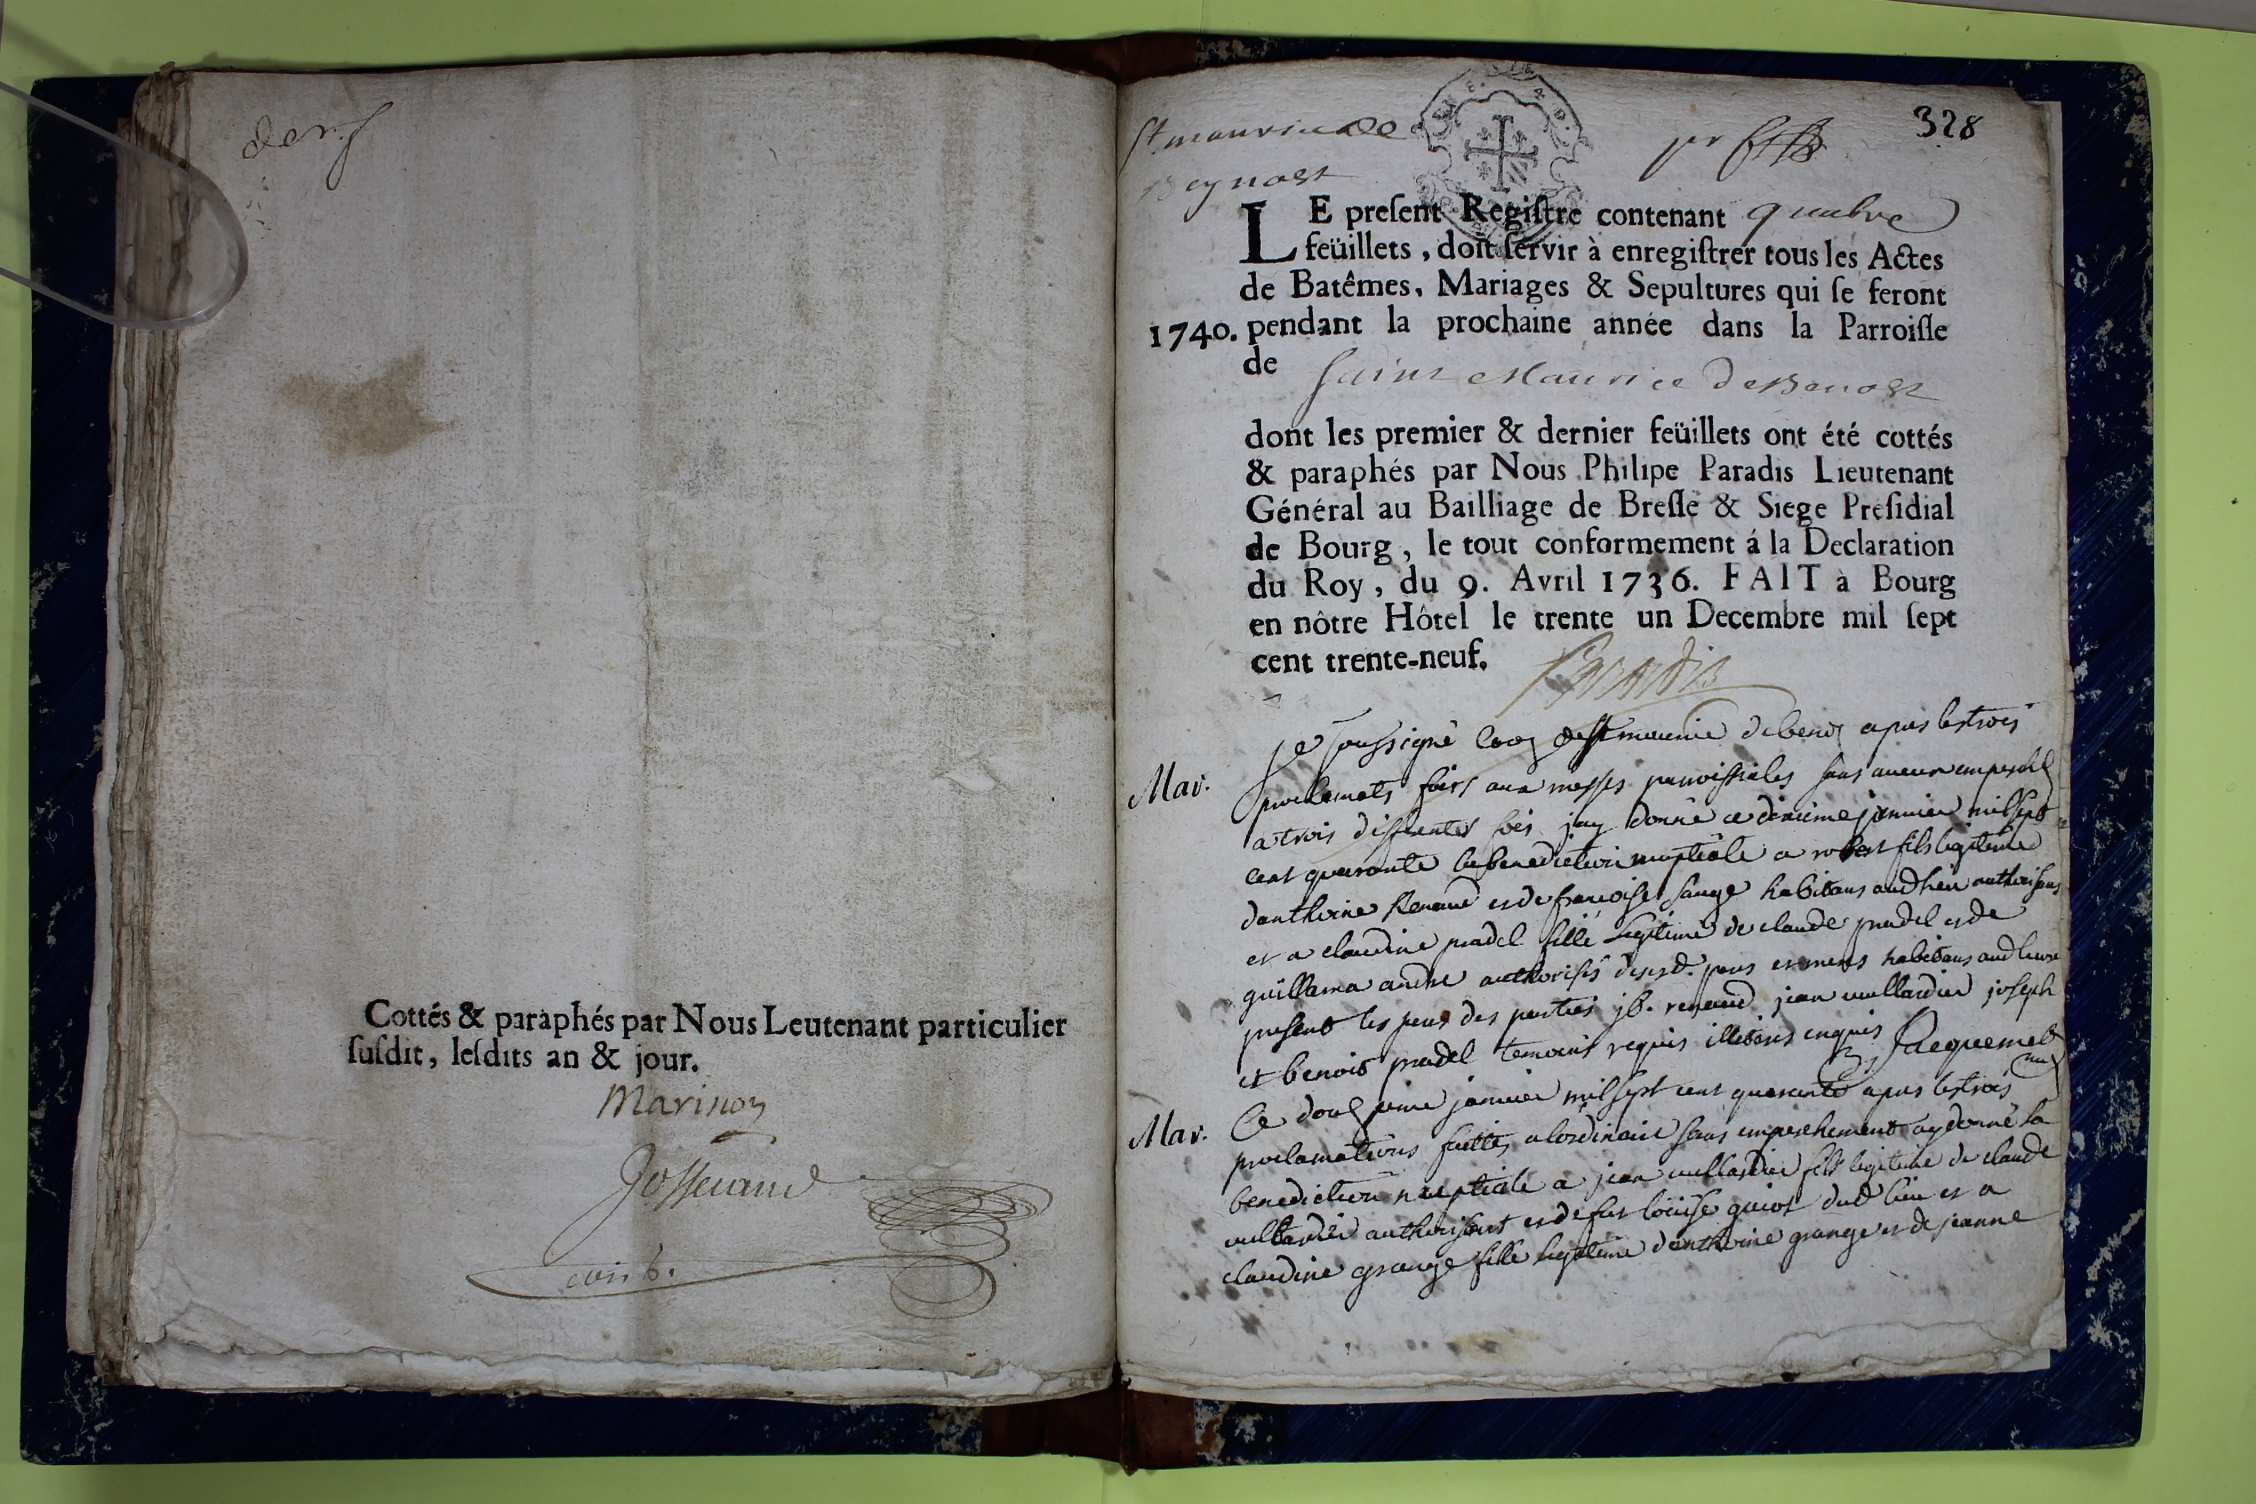 der.
Cottés & paraphés par Nous Leutenant particulier
susdit, lesdits an & jour.
Marinon
Josserand
328
St maurice de
Beynost
LE present Registre contenant quatre
feüillets, doit servir à enregistrer tous les Actes
de Batêmes, Mariages & Sepultures qui se feront
1740. pendant la prochaine année dans la Parroisse
de Saint Maurice de Benost
dont les premier & dernier feüillets ont été cottés
& paraphés par Nous Philipe Paradis Lieutenant
Général au Bailliage de Bresse & Siege Présidial
de Bourg, le tout conformement á la Declaration
du Roy, du 9. Avril 1736. FAIT à Bourg
en nôtre Hôtel le trente un Decembre mil sept
cent trente-neuf.
Paradis
Je soussigné de St maurice de apres les trois
Mar.
proclamats faits aux messes parroissiales sans aucun
a trois differentes fois jay donné ce janvier mil sept
cent quarante la benediction nuptiale a robert fils legitime
danthoine Renaud et de francoise habitans aud lieu authorisans
et a claudine pradel fille legitime de claude pradel et de
guillama andre authorisés desd. peres et meres habitans aud lieu
present les peres des parties jb. renaud jean vullardier joseph
et benoit pradel temoins requis illeteres enquis Jacquemet
Mar.
Ce janvier mil sept cent quarante apres les trois
proclamations faittes a lordinaire sans empeschement ay donné la
benediction nuptiale a jean vullardier fils legitime de claude
vullardier authorisant et de fut loüise guiot dud lieu et a
claudine grange fille legitime danthoine grange et de jeanne